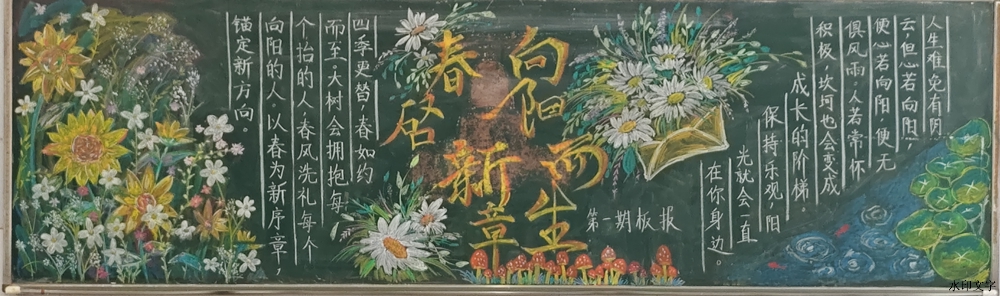 人生难免有阴
云,但心若向阳,
便心若向阳,便无
俱风雨,人若常怀
积极,坎坷也会变成
成长的阶梯。
保持乐观,阳
光就会一直
在你身边。
向阳而生
春启新章
第一期板报
四季更替,春如约
而至,大树会拥抱每
个抬的人,春风洗礼每个
向阳的人。以春为新序章,
锚定新方向。
水印文字